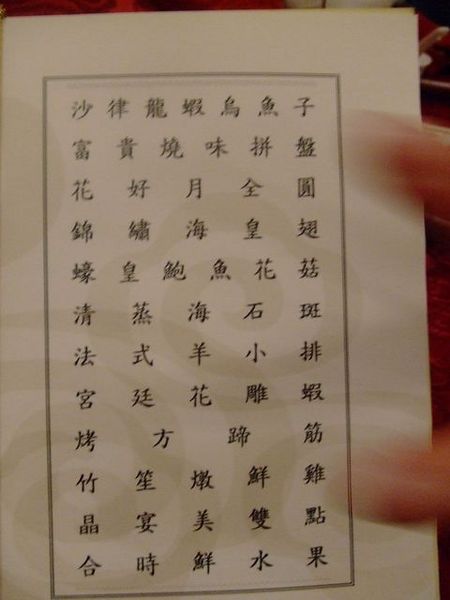 沙律龍蝦烏魚子
富貴燒味拼盤
花好月全圓
錦繡海皇翅
蠔皇鮑魚花菇
清蒸海石斑
法式羊小排
宮廷花雕蝦
烤方蹄筋
竹笙燉鮮雞
晶宴美雙點
合時鮮水果